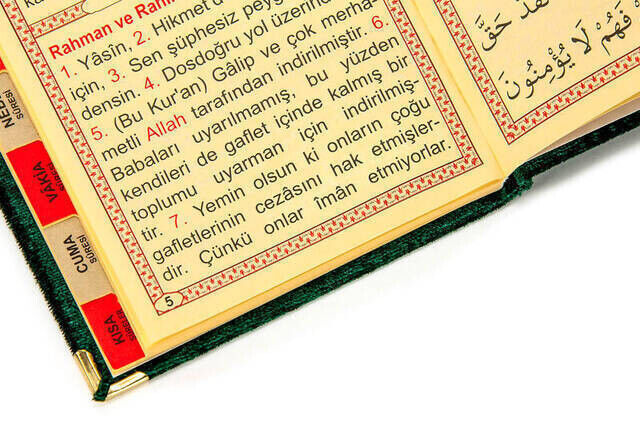 Rahman ve Rahîm
1. Yâsîn, 2. Hikmet
için, 3. Sen şüphesiz
densin. 4. Dosdoğru yol üzerinde
5. (Bu Kur'an) Gâlip ve çok merha-
metli Allah tarafından indirilmiştir. 6.
Babaları uyarılmamış, bu yüzden
kendileri de gaflet içinde kalmış bir
toplumu uyarman için indirilmiş-
tir. 7. Yemin olsun ki onların çoğu
gafletlerinin cezâsını hak etmişler-
dir. Çünkü onlar îmân etmiyorlar.
5
حَقَّ
فَهُمْ لَا يُؤْمِنُونَ
SURESİ
VAKIA
SURESİ
CUMA
SURESİ
KISA
SURELER